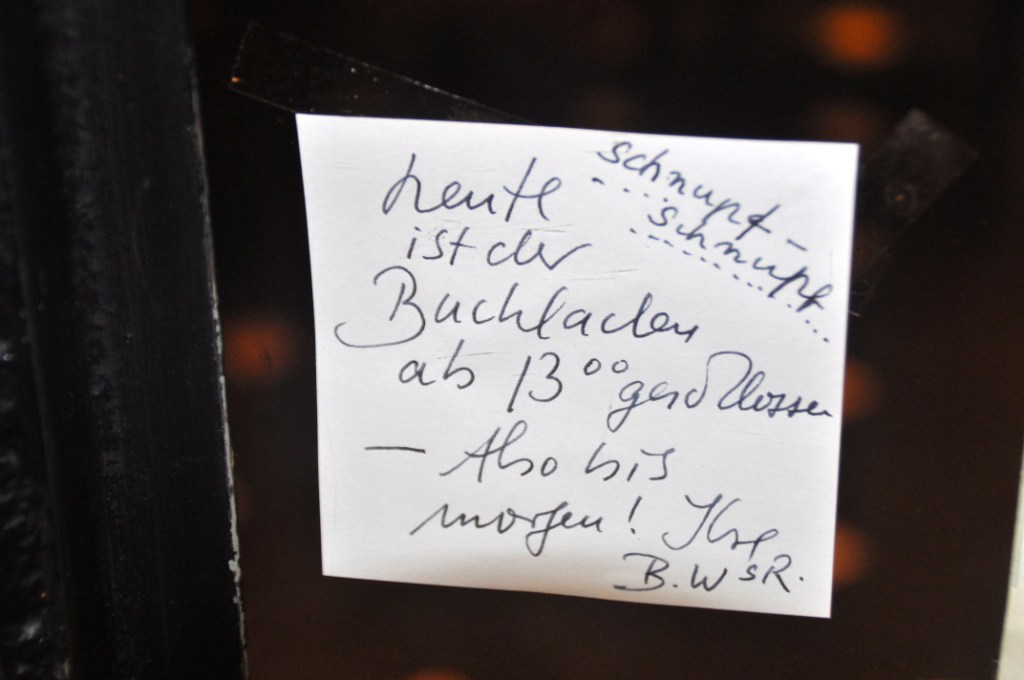 schnupf -
schnupf
heute
ist der
Buchladen
ab 13⁰⁰ geschlossen
— Also bis
morgen! Ihre